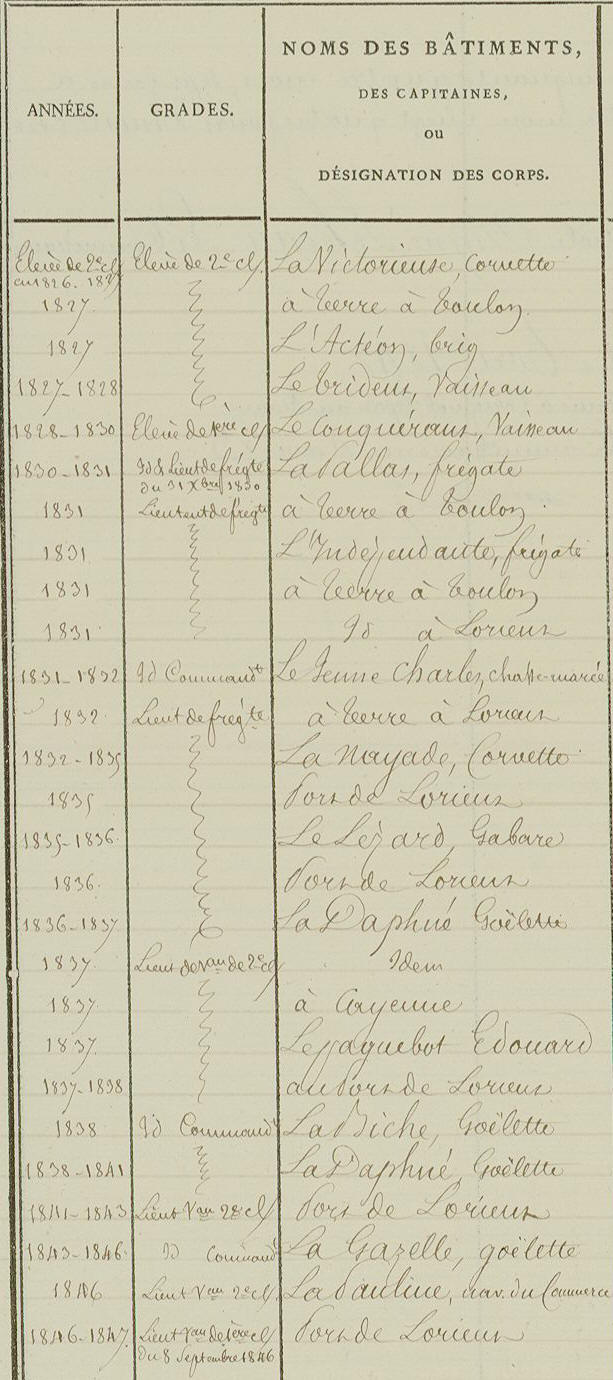 ANNÉES. GRADES. NOMS DES BÂTIMENTS,
DES CAPITAINES,
ou
DÉSIGNATION DES CORPS.
Eleve de 2e cl. Eleve de 2e cl. La Victorieuse, Corvette
en 1826. 1827
1827. à terre à Toulon
1827 L'Actéon, brig
1827-1828 Le Trident, Vaisseau
1828-1830 Eleve de 1ère cl Le Conquérant, Vaisseau
1830-1831 Id & Lieut de frégte La Pallas, frégate
du 31 Xbre 1830
1831 Lieutent de frégte à terre à Toulon
1831 L'Indépendante, frégate
1831 à terre à Toulon
1831 Id à Lorient
1831-1832 Id Commandt Le Jeune Charles, chasse-marée
1832 Lieut de frégte à terre à Lorient
1832-1835 La Nayade, Corvette
1835 Port de Lorient
1835-1836 Le Lézard, Gabare
1836. Port de Lorient
1836-1837 La Daphné Goëlette
1837 Lieut de vau de 2e cl Idem
1837 à Cayenne
1837. Le paquebot Edouard
1837-1838 au Port de Lorient
1838 Id Commandt La Biche, Goëlette
1838-1841 La Daphné, Goëlette
1841-1843 Lieut Vau 2e cl Port de Lorient
1843-1846 Id Command La Gazelle, goëlette
1846 Lieut Vau 2e cl. La Pauline, nav. du Commerce
1846-1847. Lieut Vau de 1ère cl Port de Lorient
du 8 Septembre 1846